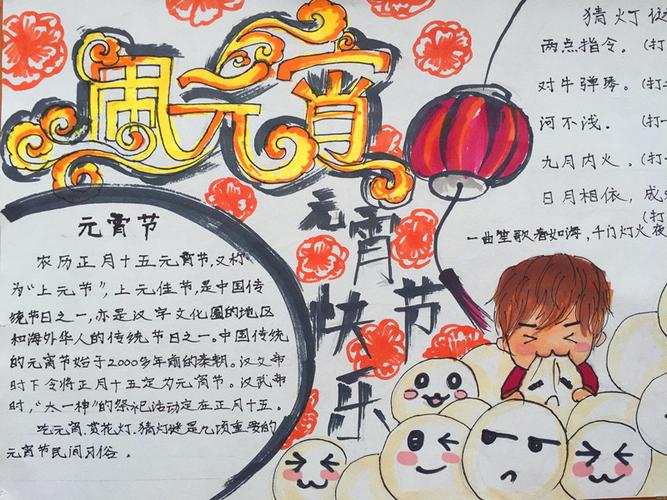 闹元宵
元霄节快乐
元霄节
农历正月十五元霄节,又称
为“上元节”,上元佳节,是中国传
统节日之一,亦是汉字文化圈的地区
和海外华人的传统节日之一。中国传统
的元霄节始于2000多年前的秦朝。汉文帝
时下令将正月十五定为元霄节。汉武帝
时,“太一神”的祭祀活动定在正月十五。
吃元霄、赏花灯、猜灯谜是几项重要的
元霄节民间习俗。
猜灯
两点指令。(打
对牛弹琴。(打
河不浅。(打一
九月内火。(打
日月相依,成
(打
一曲笙歌春如海,千门灯火夜